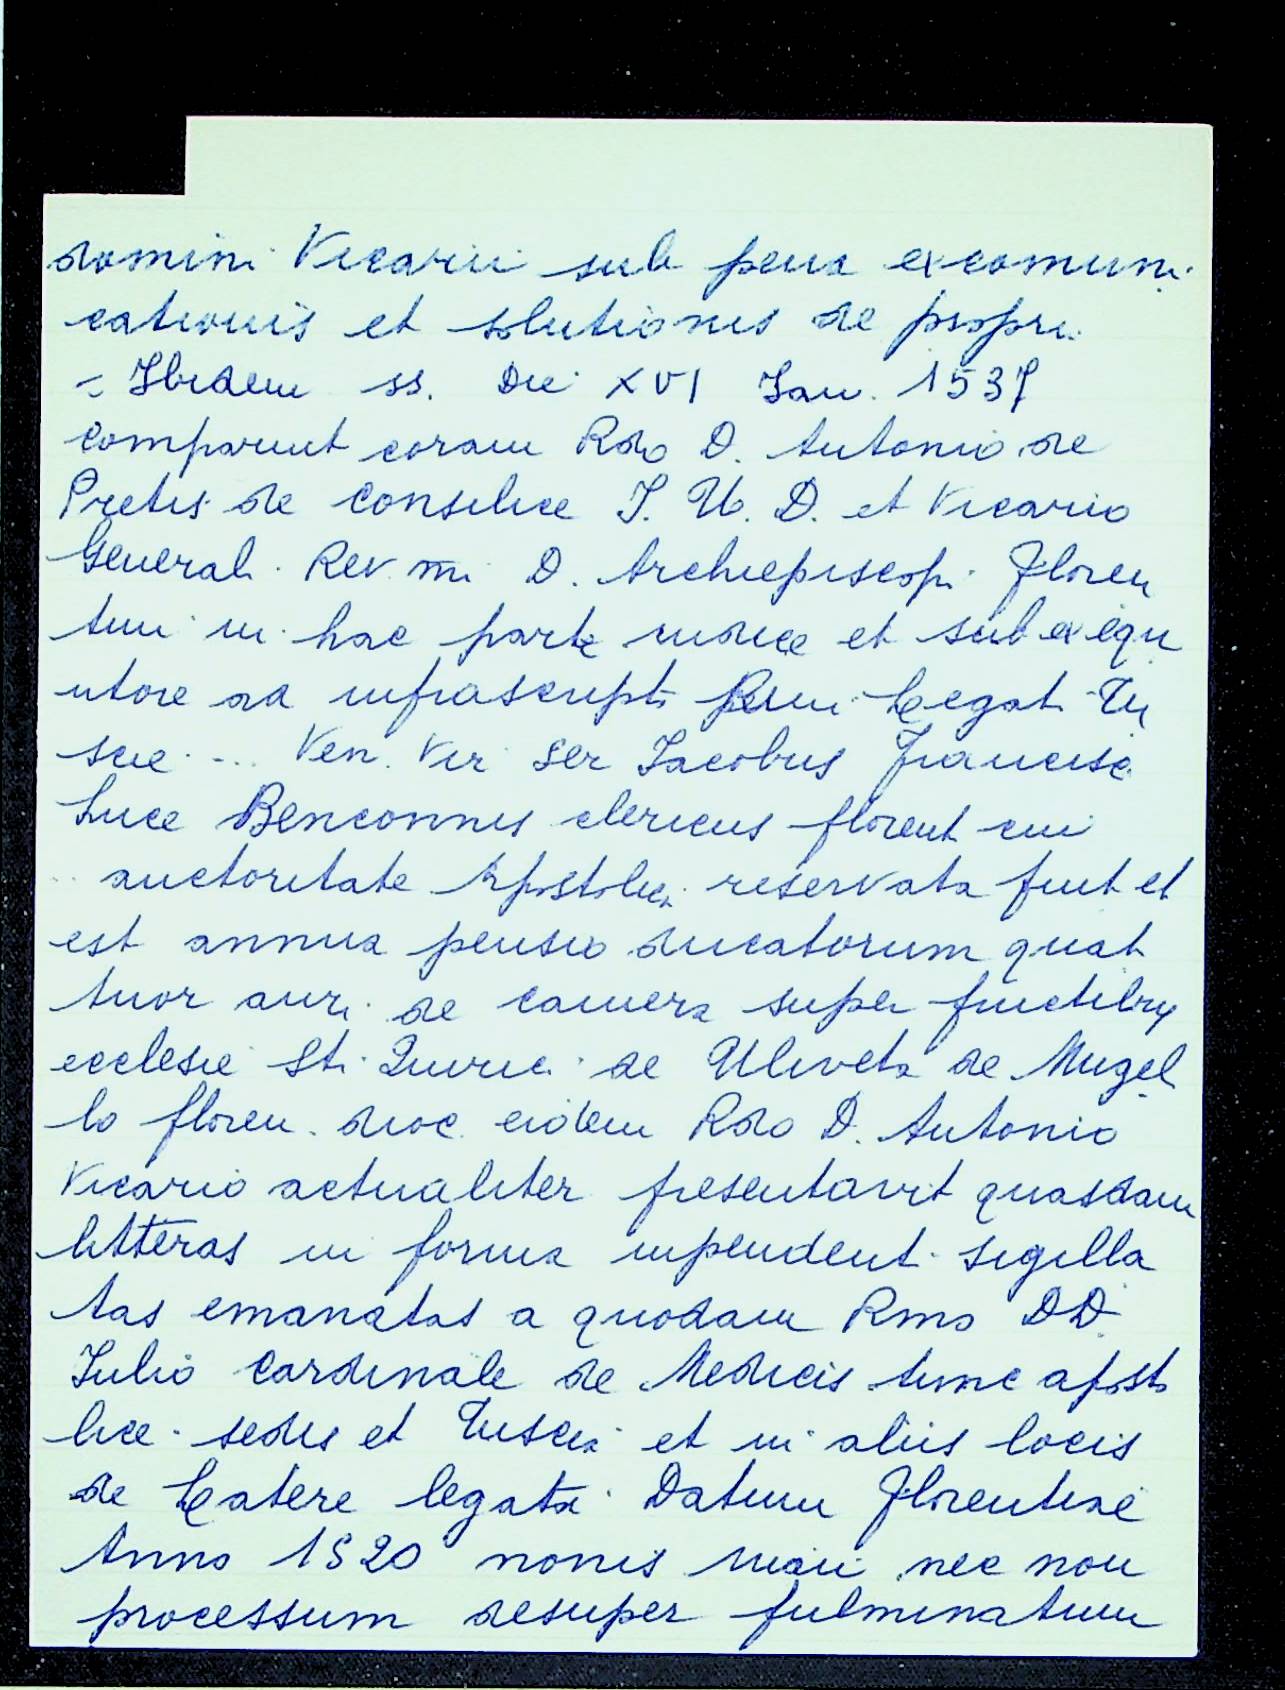 domini Vicarii sub pena excomuni
cationis et solutionis de propri
- Ibidem ss. Die XVI Jan. 1537
comparuit coram Rdo D. Antonio de
Pretis de Consilice J. U. D. et Vicario
General. Rev.mi D. Archiepiscopi Floren
tini in hac parte iudice et subexequ
utore ad infrascripti Legati Tu
scie ... Ven. Vir Ser Jacobus Francisci
Luce Benconnis clericus florent cui
auctoritate Apostolica reservata fuit et
est annua pensio ducatorum quat
tuor auri de camera super fructibus
ecclesie Sti Quirici de Uliveta de Mugel
lo floren. dioc. eidem Rdo D. Antonio
Vicario actualiter presentavit quasdam
litteras in forma inpendent. sigilla
tas emanatas a quodam Rmo DD.
Julio Cardinale de Medicis tunc aposto
lice sedis et Tuscia et in aliis locis
de Latere legata Datum Florentiae
Anno 1520 nonis maii nec non
processum desuper fulminatum